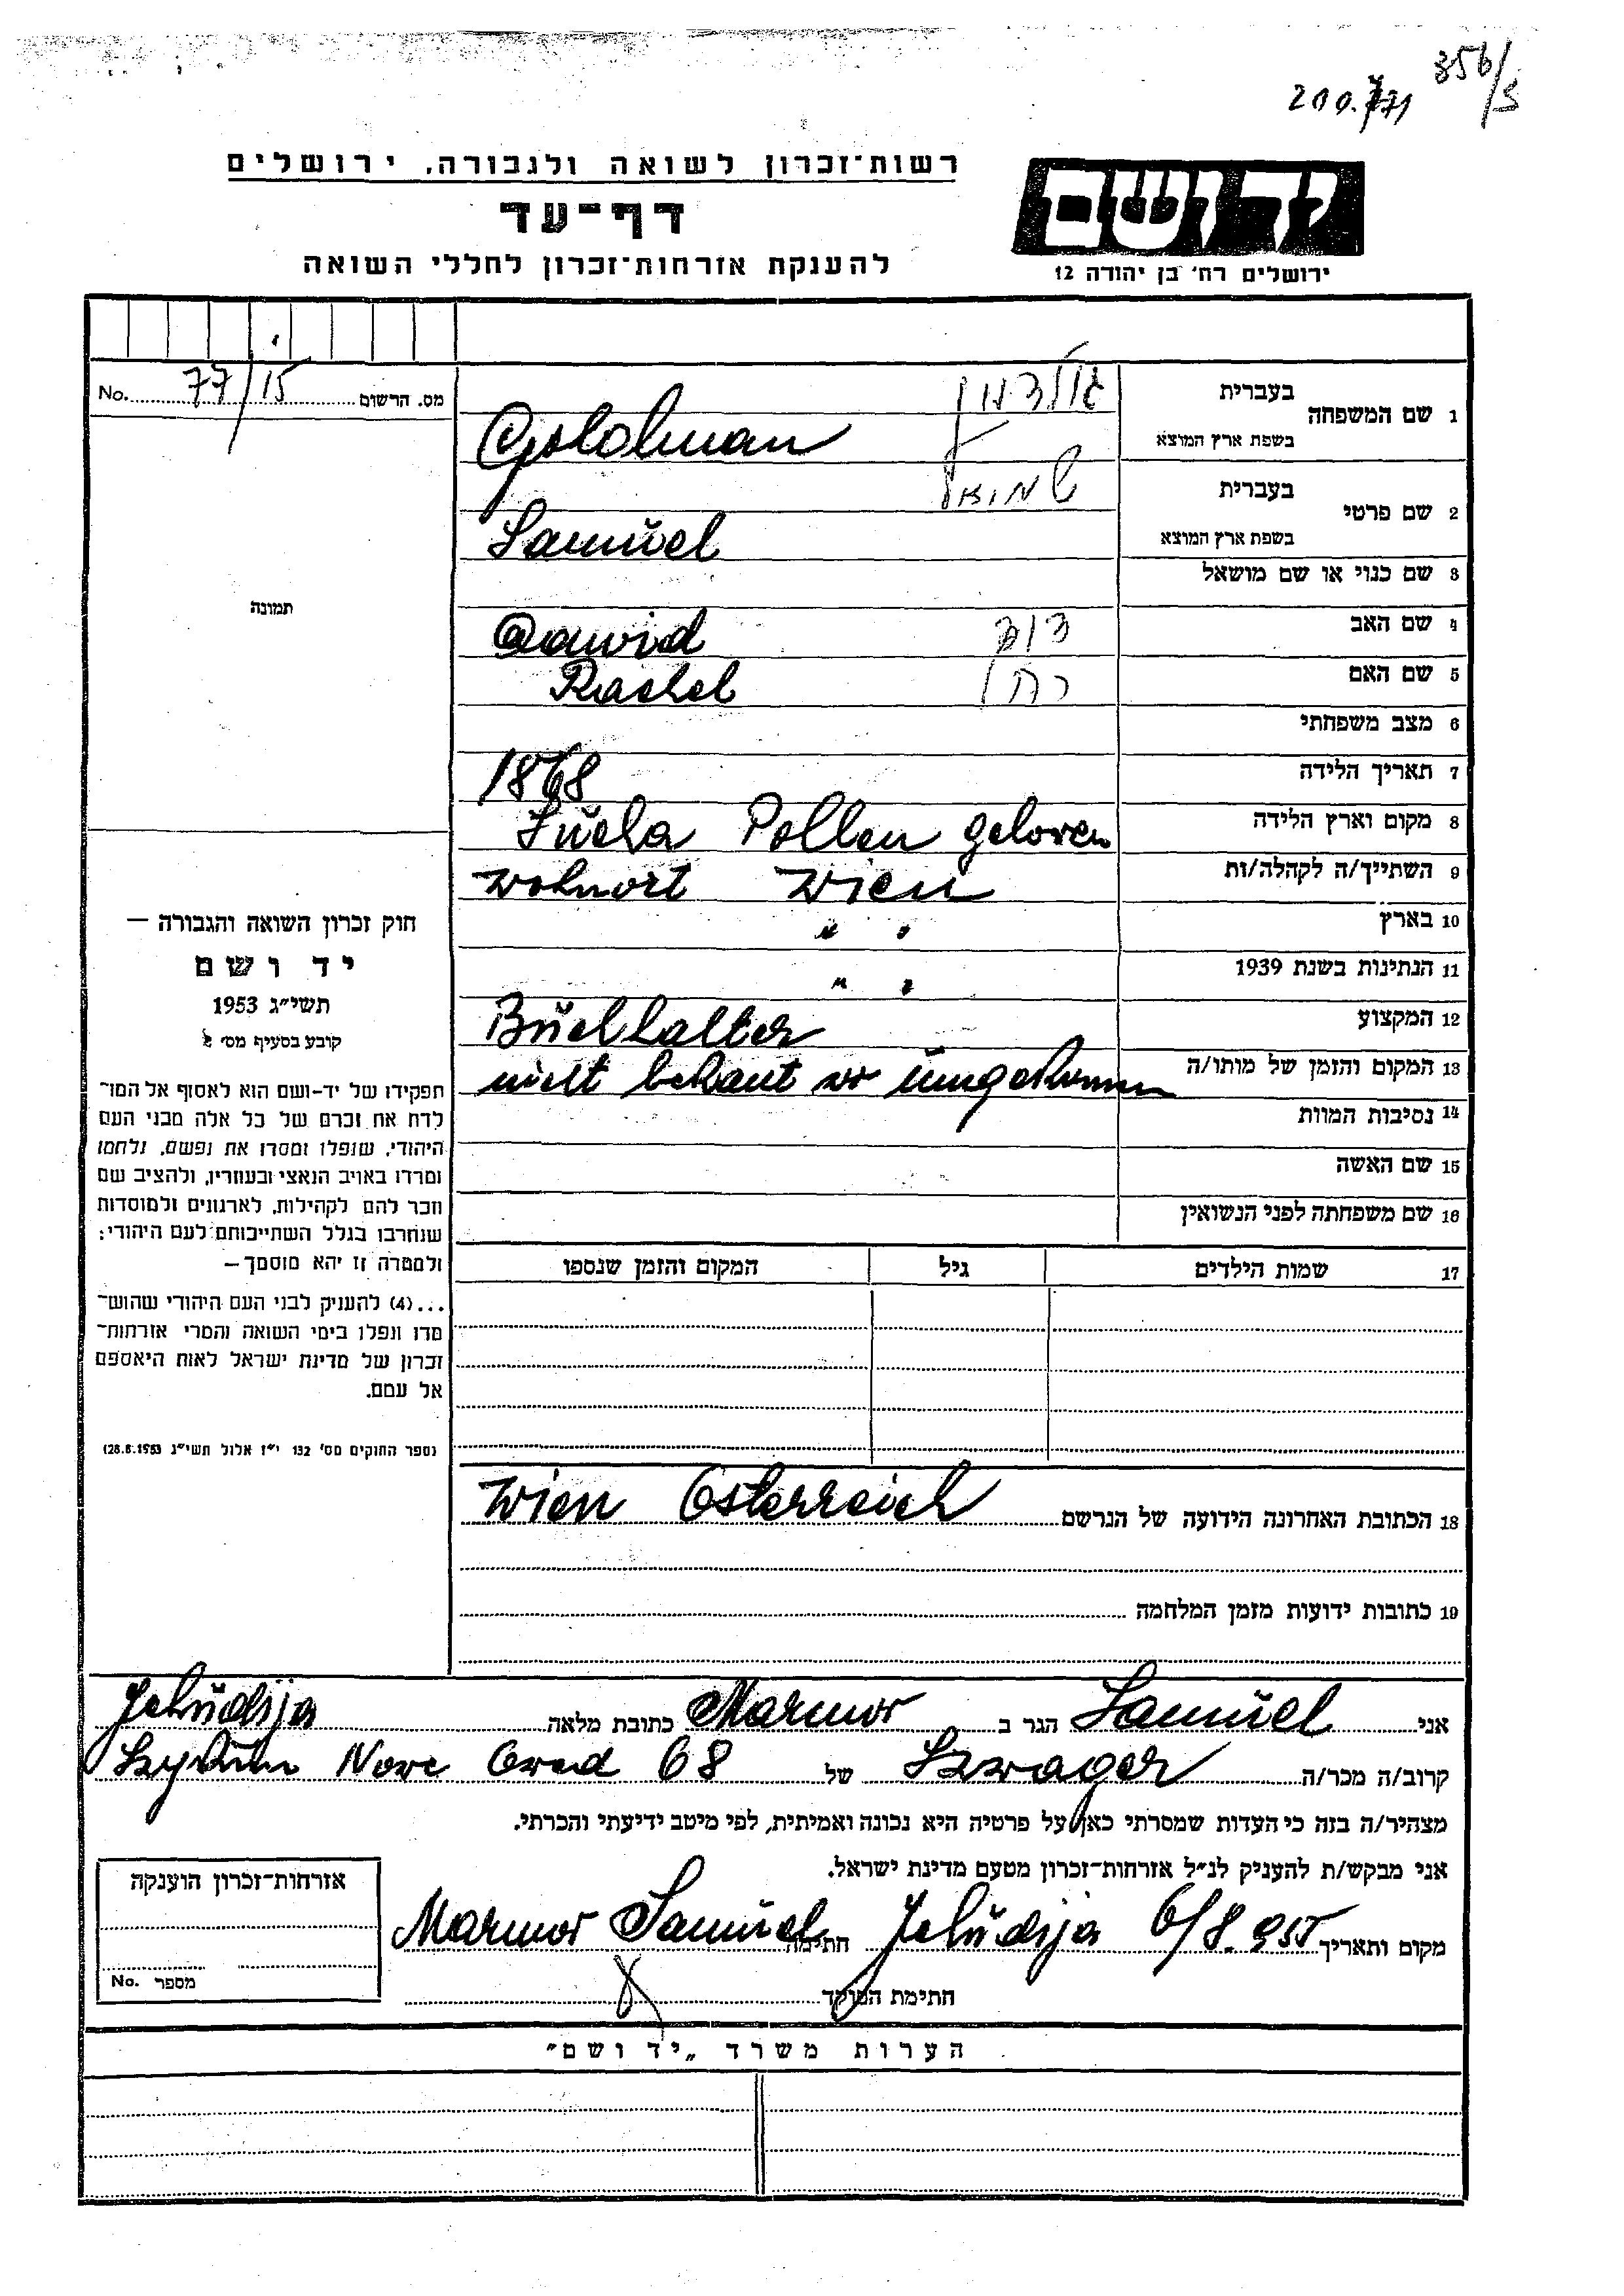 356/5
יד ושם
ירושלים רח' בן יהודה 12
רשות־זכרון לשואה ולגבורה, ירושלים
דף־עד
להענקת אזרחות־זכרון לחללי השואה
מס. הרשום 77/15 No.
תמונה
חוק זכרון השואה והגבורה —
יד ושם
תשי״ג 1953
קובע בסעיף מס׳ 2
תפקידו של יד-ושם הוא לאסוף אל המו־
לדת את זכרם של כל אלה מבני העם
היהודי, שנפלו ומסרו את נפשם, נלחמו
ומרדו באויב הנאצי ובעוזריו, ולהציב שם
וזכר להם לקהילות, לארגונים ולמוסדות
שנחרבו בגלל השתייכותם לעם היהודי;
ולמטרה זו יהא מוסמך —
...(4) להעניק לבני העם היהודי שהוש־
מדו ונפלו בימי השואה והמרי אזרחות־
זכרון של מדינת ישראל לאות היאספם
אל עמם.
(ספר החוקים מס' 132 י״ז אלול תשי״ג 28.8.1953)
1 שם המשפחה
בעברית גולדמן
בשפת ארץ המוצא Goldman
2 שם פרטי
בעברית שמואל
בשפת ארץ המוצא Samŭel
3 שם כנוי או שם מושאל
4 שם האב דוד Dawid
5 שם האם רחל Rachel
6 מצב משפחתי
7 תאריך הלידה 1868
8 מקום וארץ הלידה Pollen geloren
9 השתייך/ה לקהלה/ות Wohnort Wien
10 בארץ " "
11 הנתינות בשנת 1939 " "
12 המקצוע Bŭchhalter
13 המקום והזמן של מותו/ה nicht bekant wo ŭmgekommen
14 נסיבות המוות
15 שם האשה
16 שם משפחתה לפני הנשואין
17 שמות הילדים גיל המקום והזמן שנספו
18 הכתובת האחרונה הידועה של הנרשם Wien Österreich
19 כתובות ידועות מזמן המלחמה
אני Samŭel הגר ב Marmor כתובת מלאה Jehŭdija
קרוב/ה מכר/ה Szwager של Szykŭn Nove Grad 68
מצהיר/ה בזה כי העדות שמסרתי כאן על פרטיה היא נכונה ואמיתית, לפי מיטב ידיעתי והכרתי.
אני מבקש/ת להעניק לנ״ל אזרחות־זכרון מטעם מדינת ישראל.
מקום ותאריך Jehŭdija 6/8. 955 חתימה Marmor Samŭel
חתימת הפוקד
אזרחות־זכרון הוענקה
מספר No.
הערות משרד „יד ושם״